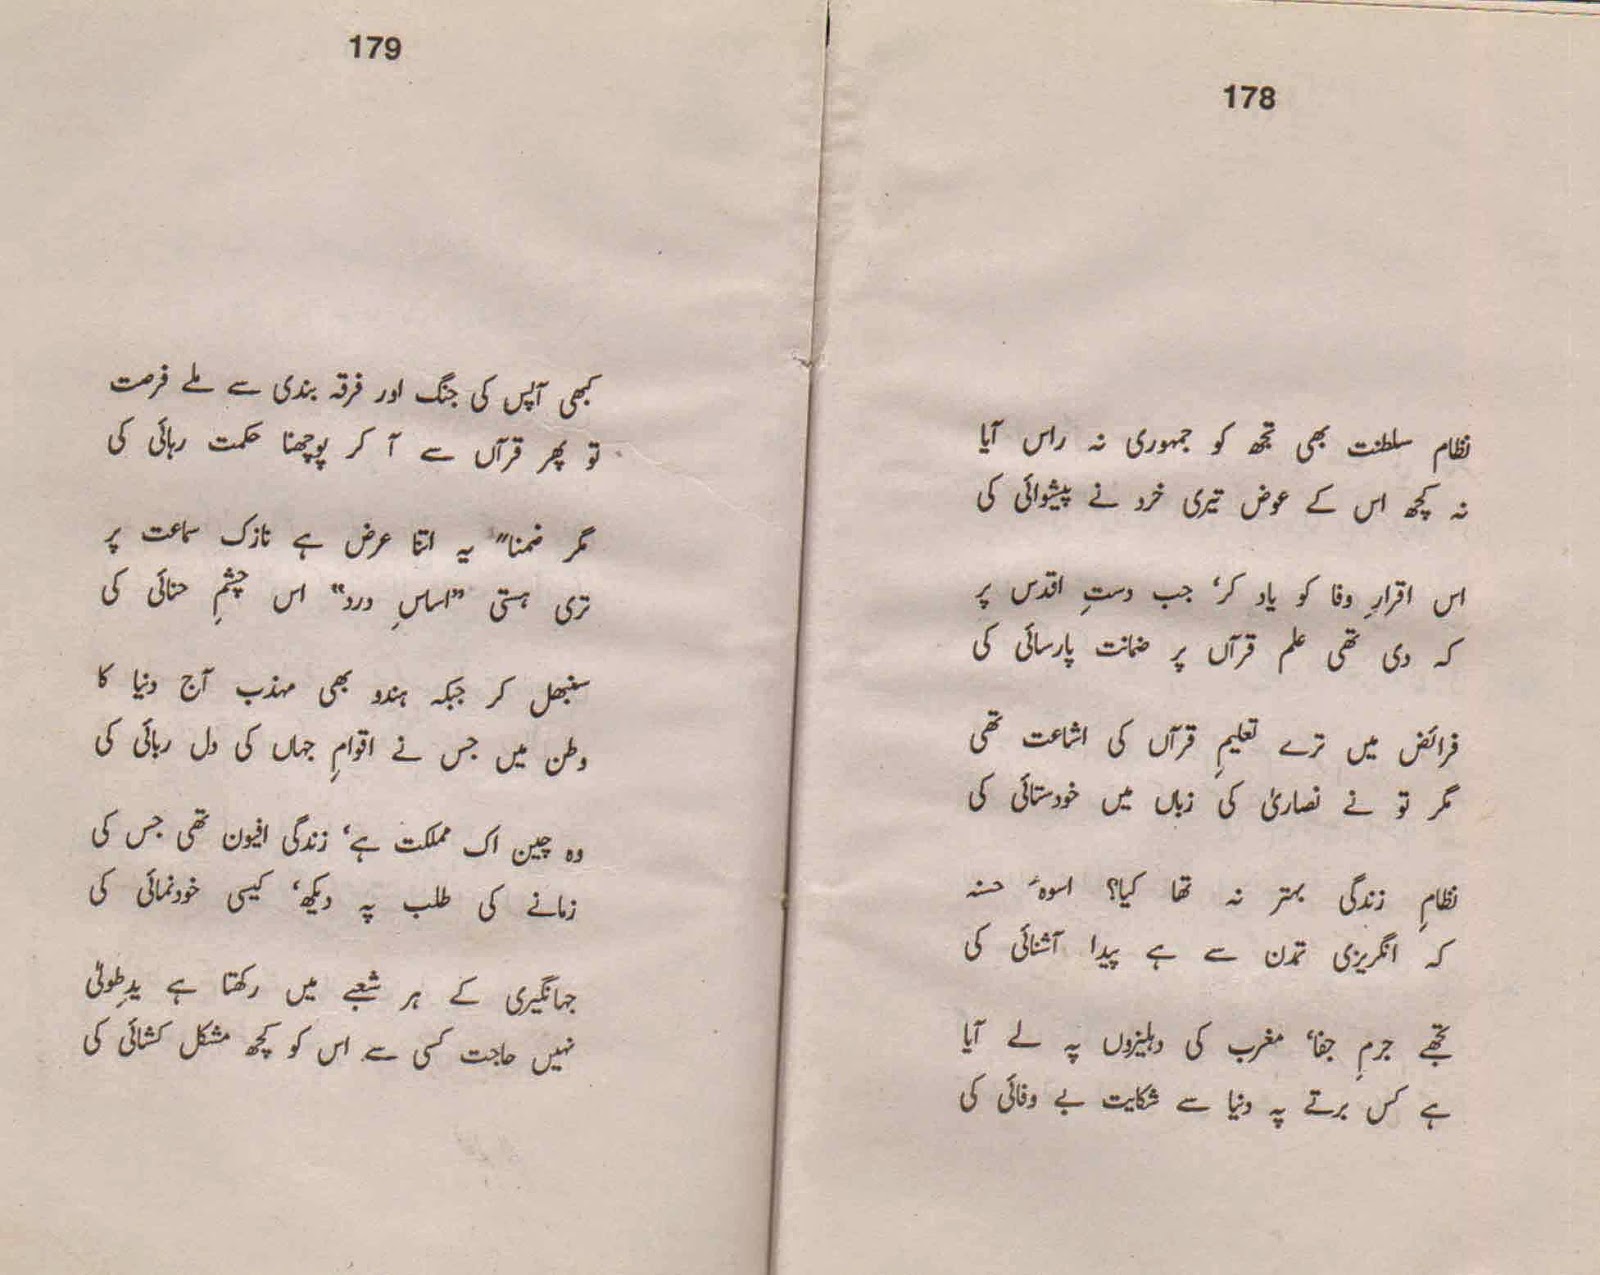 178
نظامِ سلطنت بھی تجھ کو جمہوری نہ راس آیا
نہ کچھ اس کے عوض تیری خرد نے پیشوائی کی
اس اقرارِ وفا کو یاد کر، جب دستِ اقدس پر
کہ دی تھی علم قرآں پر ضمانت پارسائی کی
فرائض میں ترے تعلیمِ قرآں کی اشاعت تھی
مگر تو نے نصاریٰ کی زباں میں خودستائی کی
نظامِ زندگی بہتر نہ تھا کیا؟ اسوۂ حسنہ
کہ انگریزی تمدن سے ہے پیدا آشنائی کی
تجھے جرمِ جفا، مغرب کی دہلیزوں پہ لے آیا
ہے کس برتے پہ دنیا سے شکایت بے وفائی کی
179
کبھی آپس کی جنگ اور فرقہ بندی سے ملے فرصت
تو پھر قرآں سے آ کر پوچھنا حکمت رہائی کی
مگر ضمنا" یہ اتنا عرض ہے نازک سماعت پر
تری ہستی "اساسِ درد" اس چشمِ حنائی کی
سنبھل کر جبکہ ہندو بھی مہذب آج دنیا کا
وطن میں جس نے اقوامِ جہاں کی دل ربائی کی
وہ چین اک مملکت ہے، زندگی افیون تھی جس کی
زمانے کی طلب پہ دیکھ، کیسی خودنمائی کی
جہانگیری کے ہر شعبے میں رکھتا ہے یدِطولیٰ
نہیں حاجت کسی سے اس کو کچھ مشکل کشائی کی